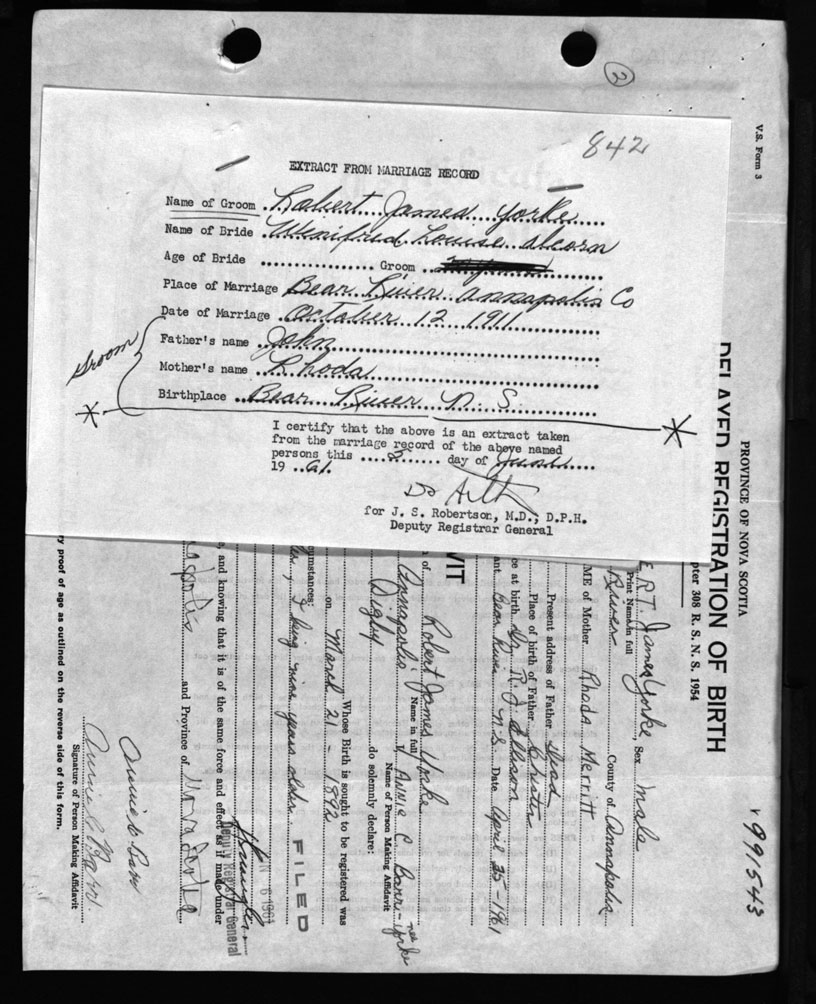 2
842
EXTRACT FROM MARRIAGE RECORD
Name of Groom Robert James Yorke
Name of Bride Winifred Louise Alcorn
Age of Bride Groom
Place of Marriage Bear River Annapolis Co
Date of Marriage October 12 1911
Father's name John
Mother's name Rhoda
Birthplace Bear River N. S.
Groom
I certify that the above is an extract taken
from the marriage record of the above named
persons this 5 day of June
19 61.
for J. S. Robertson, M.D., D.P.H.
Deputy Registrar General
V.S. Form 3
PROVINCE OF NOVA SCOTIA
DELAYED REGISTRATION OF BIRTH
pter 308 R. S. N. S. 1954
991543
ERT James Yorke, Sex Male
Print Name in full
River County of Annapolis
ME of Mother Rhoda Merritt
Present address of Father Dead
Place of birth of Father
ce at birth Dr R. J. Ellison
ant Bear River N.S. Date April 25-1961
VIT
n of Robert James Yorke
Name in full
Annapolis, Annie C. Barr - nee Yorke
Name of Person Making Affidavit
Digby do solemnly declare:
Whose Birth is sought to be registered was
on March 21 - 1892
cumstances:
I being nine years older
FILED
6 1961
Deputy Registrar General
, and knowing that it is of the same force and effect as if made under
apolis and Province of Nova Scotia
Annie C Barr
Annie C Barr.
Signature of Person Making Affidavit
ry proof of age as outlined on the reverse side of this form.